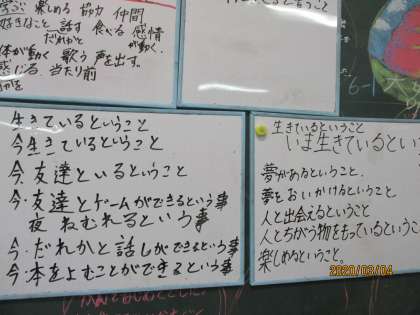 学ぶ 楽しめる 協力 仲間
好きなこと 話す 食べる 感情
だれかと が動く。
体が動く 歌う 声を出す。
感じる。当たり前
6-1
生きているということ
今生きているということ
今、友達といるということ
今、友達とゲームができるという事
夜 ねむれるという事
今・だれかと話しができるという事
今・本をよむことができるという事
生きているということ
いま生きているとい
夢があるということ、
夢をおいかけるということ
人と出会えるということ
人とちがう物をもっているというこ
楽しめるということ。
2020/03/04